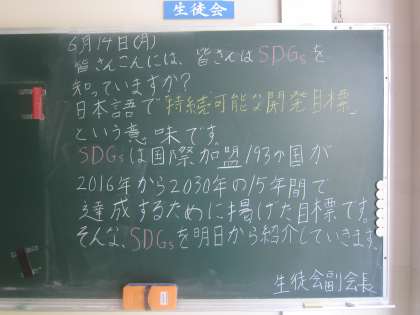 生徒会
6月14日(月)
皆さんこんにちは、皆さんはSDGsを
知っていますか?
日本語で「持続可能な開発目標」
という意味です。
SDGsは国際加盟193か国が
2016年から2030年の15年間で
達成するために掲げた目標です。
そんな、SDGsを明日から紹介していきます。
生徒会副会長